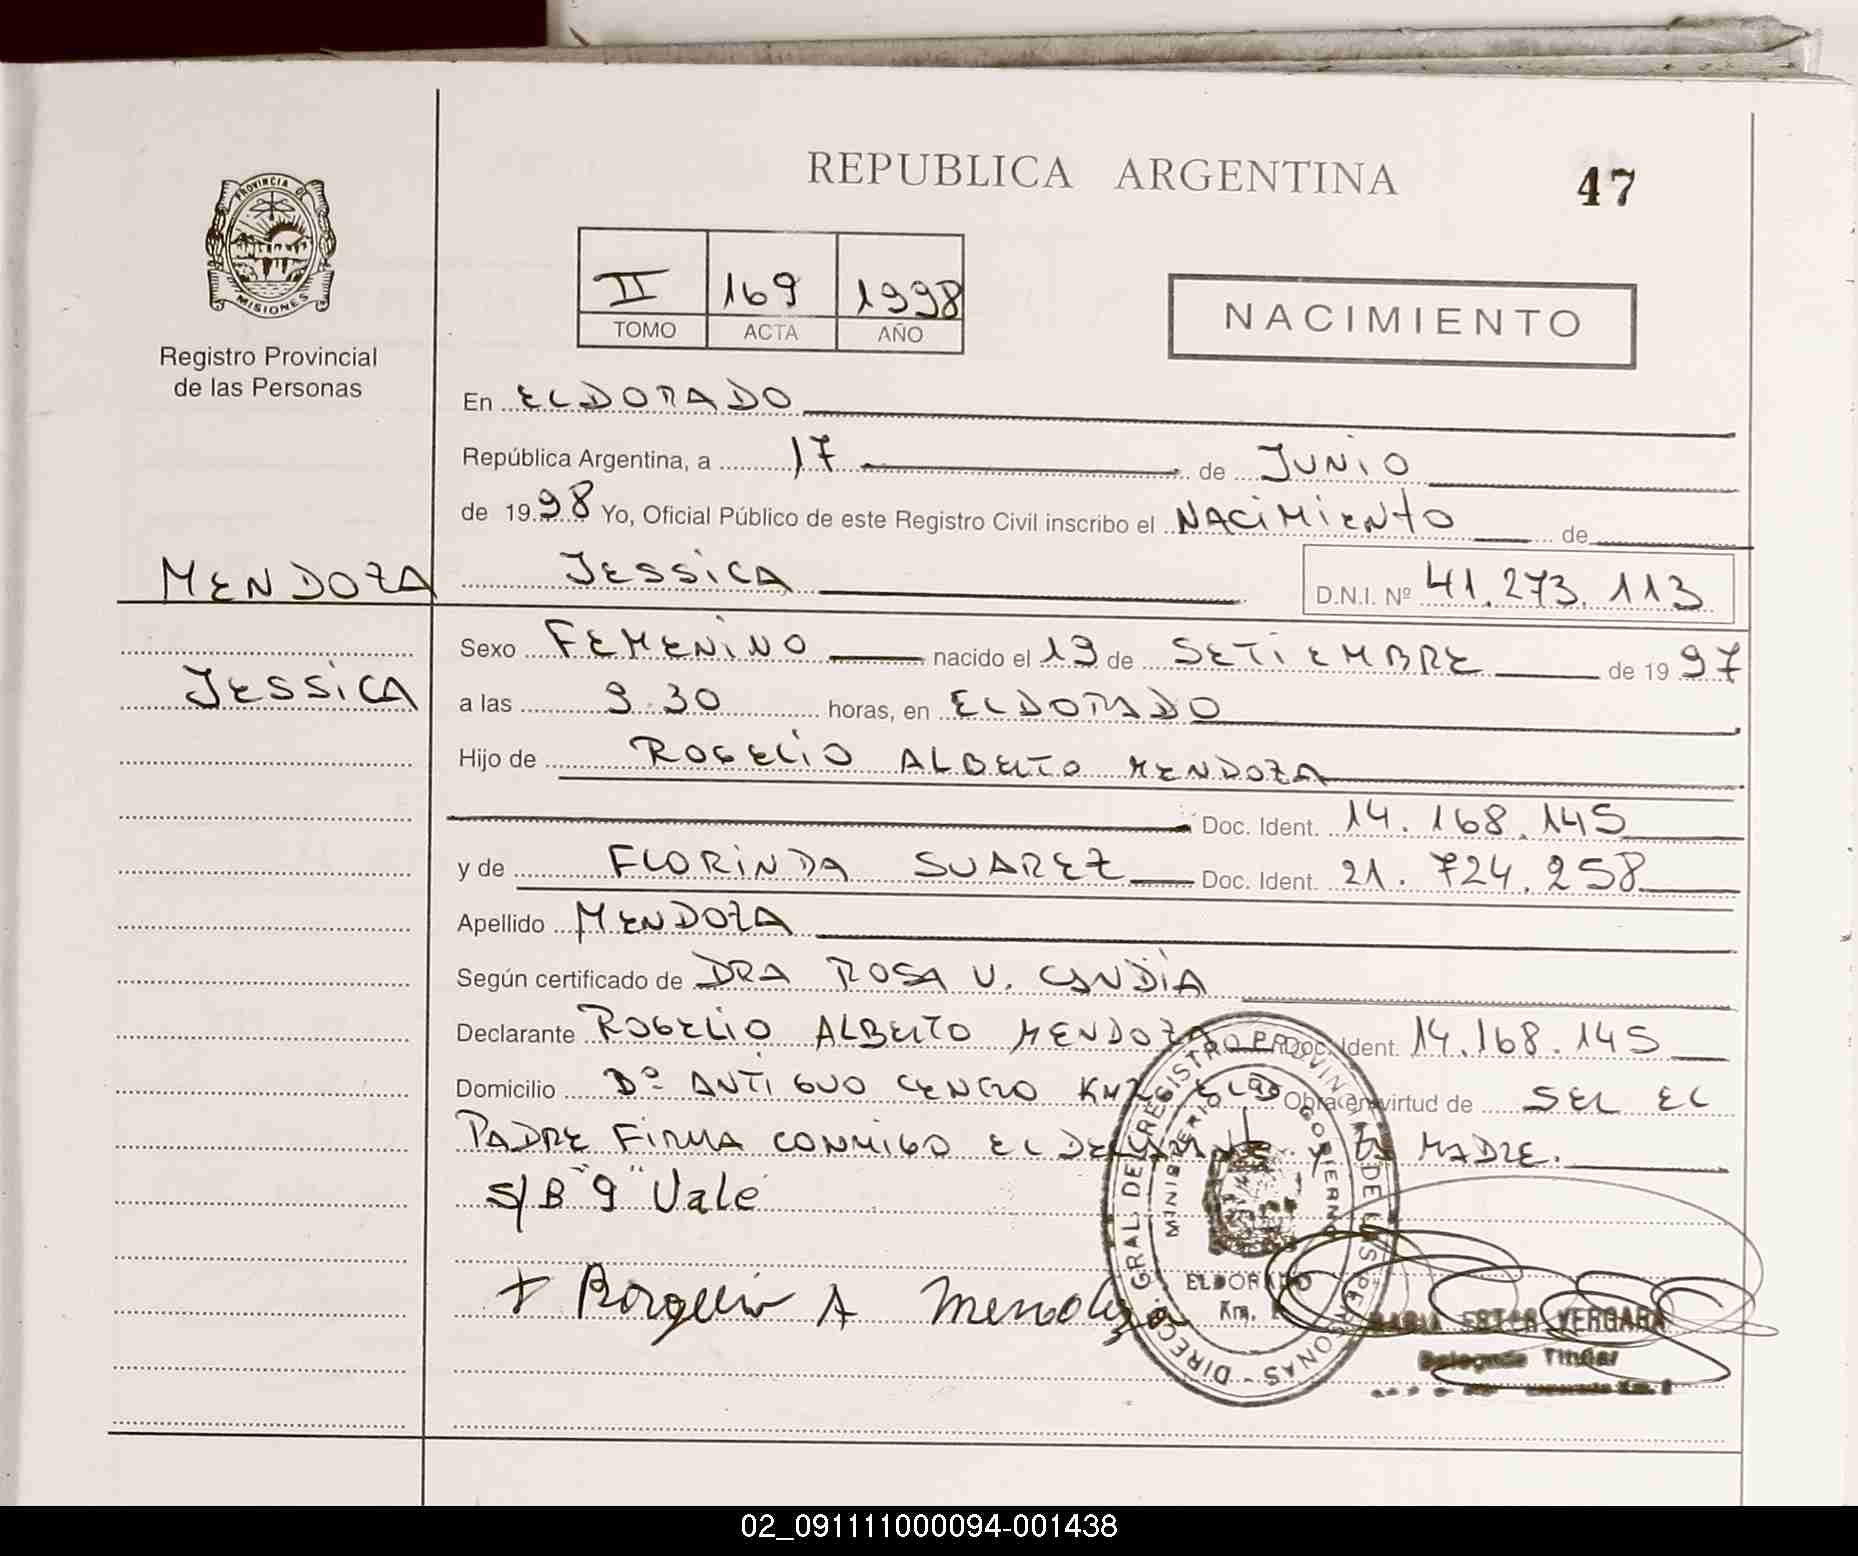 REPUBLICA ARGENTINA
47
PROVINCIA DE
MISIONES
Registro Provincial
de las Personas
II 169 1998
TOMO ACTA AÑO
NACIMIENTO
En ELDORADO
República Argentina, a 17 de JUNIO
de 1998 Yo, Oficial Público de este Registro Civil inscribo el NACIMIENTO de
MENDOZA
JESSICA
D.N.I. Nº 41.273.113
JESSICA
Sexo FEMENINO nacido el 19 de SETIEMBRE de 1997
a las 9.30 horas, en ELDORADO
Hijo de ROGELIO ALBERTO MENDOZA
Doc. Ident. 14.168.145
y de FLORINDA SUAREZ Doc. Ident. 21.724.258
Apellido MENDOZA
Según certificado de DRA ROSA V. CANDIA
Declarante ROGELIO ALBERTO MENDOZA Doc. Ident. 14.168.145
Domicilio Bº ANTIGUO CENCRO KM2 ELDO Obra en virtud de SER EL
PADRE FIRMA CONMIGO EL Y LA MADRE.
S/B "9" Vale
DIRECC. GRAL. DEL REGISTRO PROVINCIAL DE LAS PERSONAS
MINISTERIO DE GOBIERNO
ELDORADO
Km.
+ A Mendoza
MARIA ESTER VERGARA
Delegada Titular
02_091111000094-001438